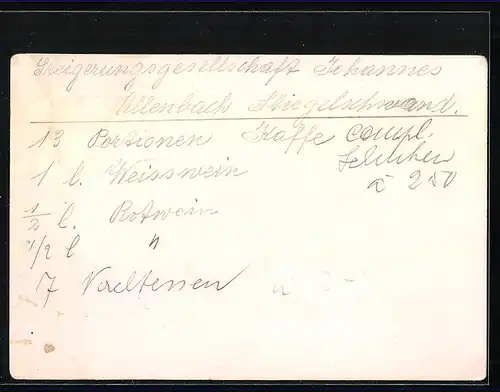 Steigerungsgesellschaft Johannes
Allenbach Stiegelschwand.
13 Portionen Kaffe compl.
Schinken
à 2 50
1 l. Weisswein
1/2 l. Rotwein
1/2 l "
7 Nachtessen à